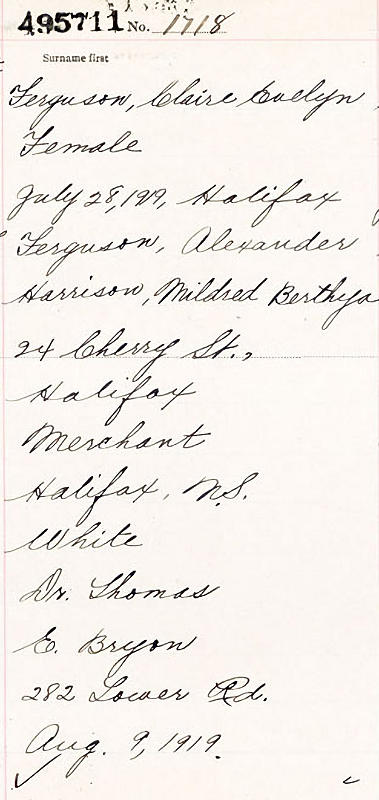 495711 No. 1718
Surname first
Ferguson, Claire Evelyn
Female
July 28, 1919, Halifax
Ferguson, Alexander
Harrison, Mildred Berthya
24 Cherry St.,
Halifax
Merchant
Halifax, N.S.
White
Dr. Thomas
E. Bryon
282 Lower Rd.
Aug. 9, 1919.